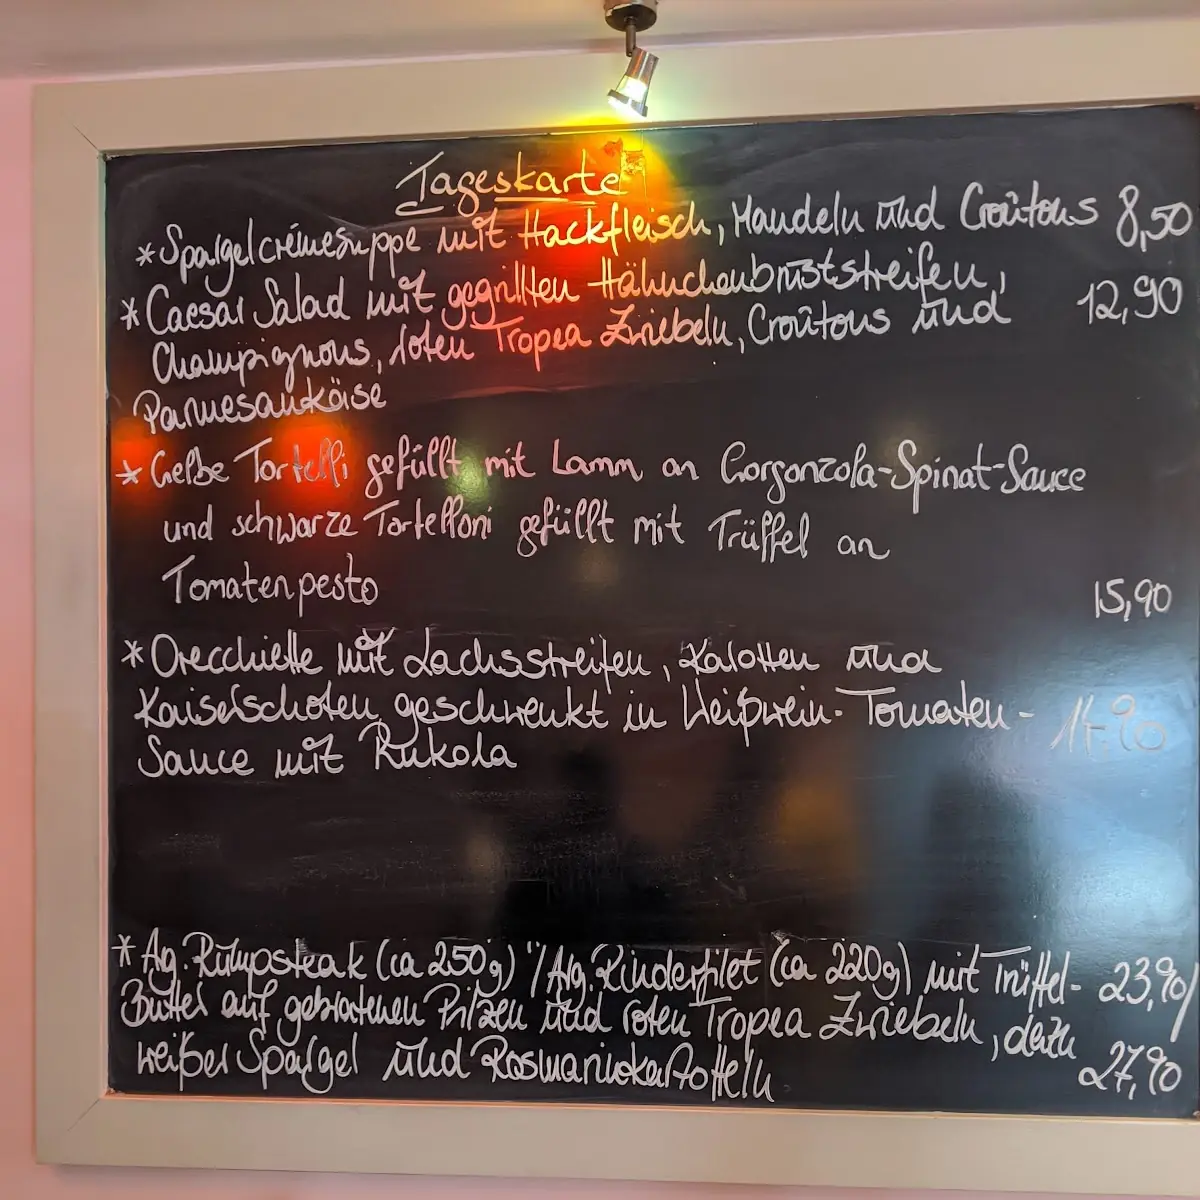 Tageskarte
* Spargelcrémesuppe mit Hackfleisch, Mandeln und Croûtons 8,50
* Caesar Salad mit gegrillten Hähnchenbruststreifen,
Champignons, roten Tropea Zwiebeln, Croûtons und 12,90
Parmesankäse
* Gelbe Tortelli gefüllt mit Lamm an Gorgonzola-Spinat-Sauce
und schwarze Tortelloni gefüllt mit Trüffel an
Tomatenpesto 15,90
* Orecchiette mit Lachsstreifen, Karotten und
Kaiserschoten geschwenkt in Weißwein-Tomaten- 14,90
Sauce mit Rukola
* Arg. Rumpsteak (ca 250g) "/Arg. Rinderfilet (ca 220g) mit Trüffel- 23,90/
Butter auf gebratenen Pilzen und roten Tropea Zwiebeln, dazu
weißer Spargel und Rosmarinkartoffeln 27,90